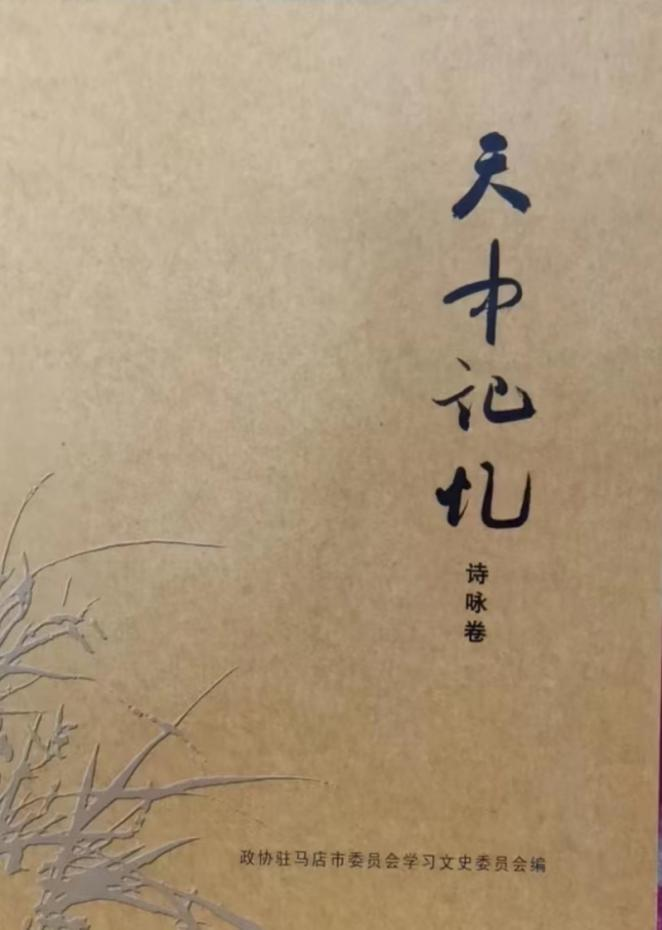 天中记忆
诗咏卷
政协驻马店市委员会学习文史委员会编